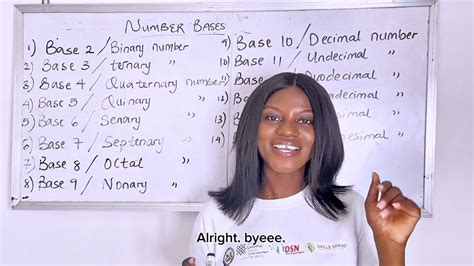 NUMBER BASES
1) Base 2 / Binary number
2) Base 3 / ternary "
3) Base 4 / Quaternary number
4) Base 5 / Quinary "
5) Base 6 / Senary "
6) Base 7 / Septenary "
7) Base 8 / Octal "
8) Base 9 / Nonary "
9) Base 10 / Decimal number
10) Base 11 / Undecimal "
11) Base
12) Base
14)
Alright. byeee.
DSN
SKILLS SPRINT